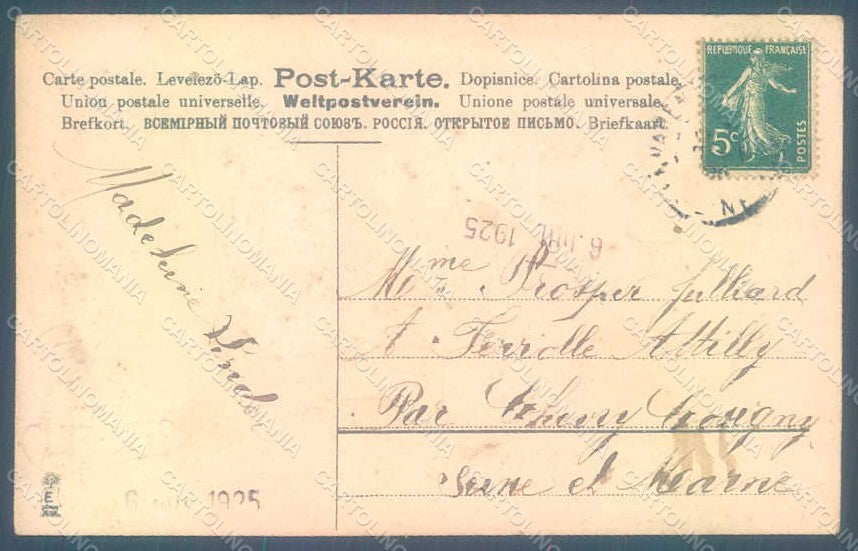 Carte postale. Levelezö-Lap. Post-Karte. Dopisnice. Cartolina postale.
Union postale universelle. Weltpostverein. Unione postale universale.
Brefkort. ВСЕМІРНЫЙ ПОЧТОВЫЙ СОЮЗЪ. РОССІЯ. ОТКРЫТОЕ ПИСЬМО. Briefkaart.
REPUBLIQUE FRANÇAISE
5c
POSTES
Madeleine
1925
Mme Prosper Julliard
A Ferrolle Attilly
Par
Seine et Marne
6 1925
CARTOLINOMANIA